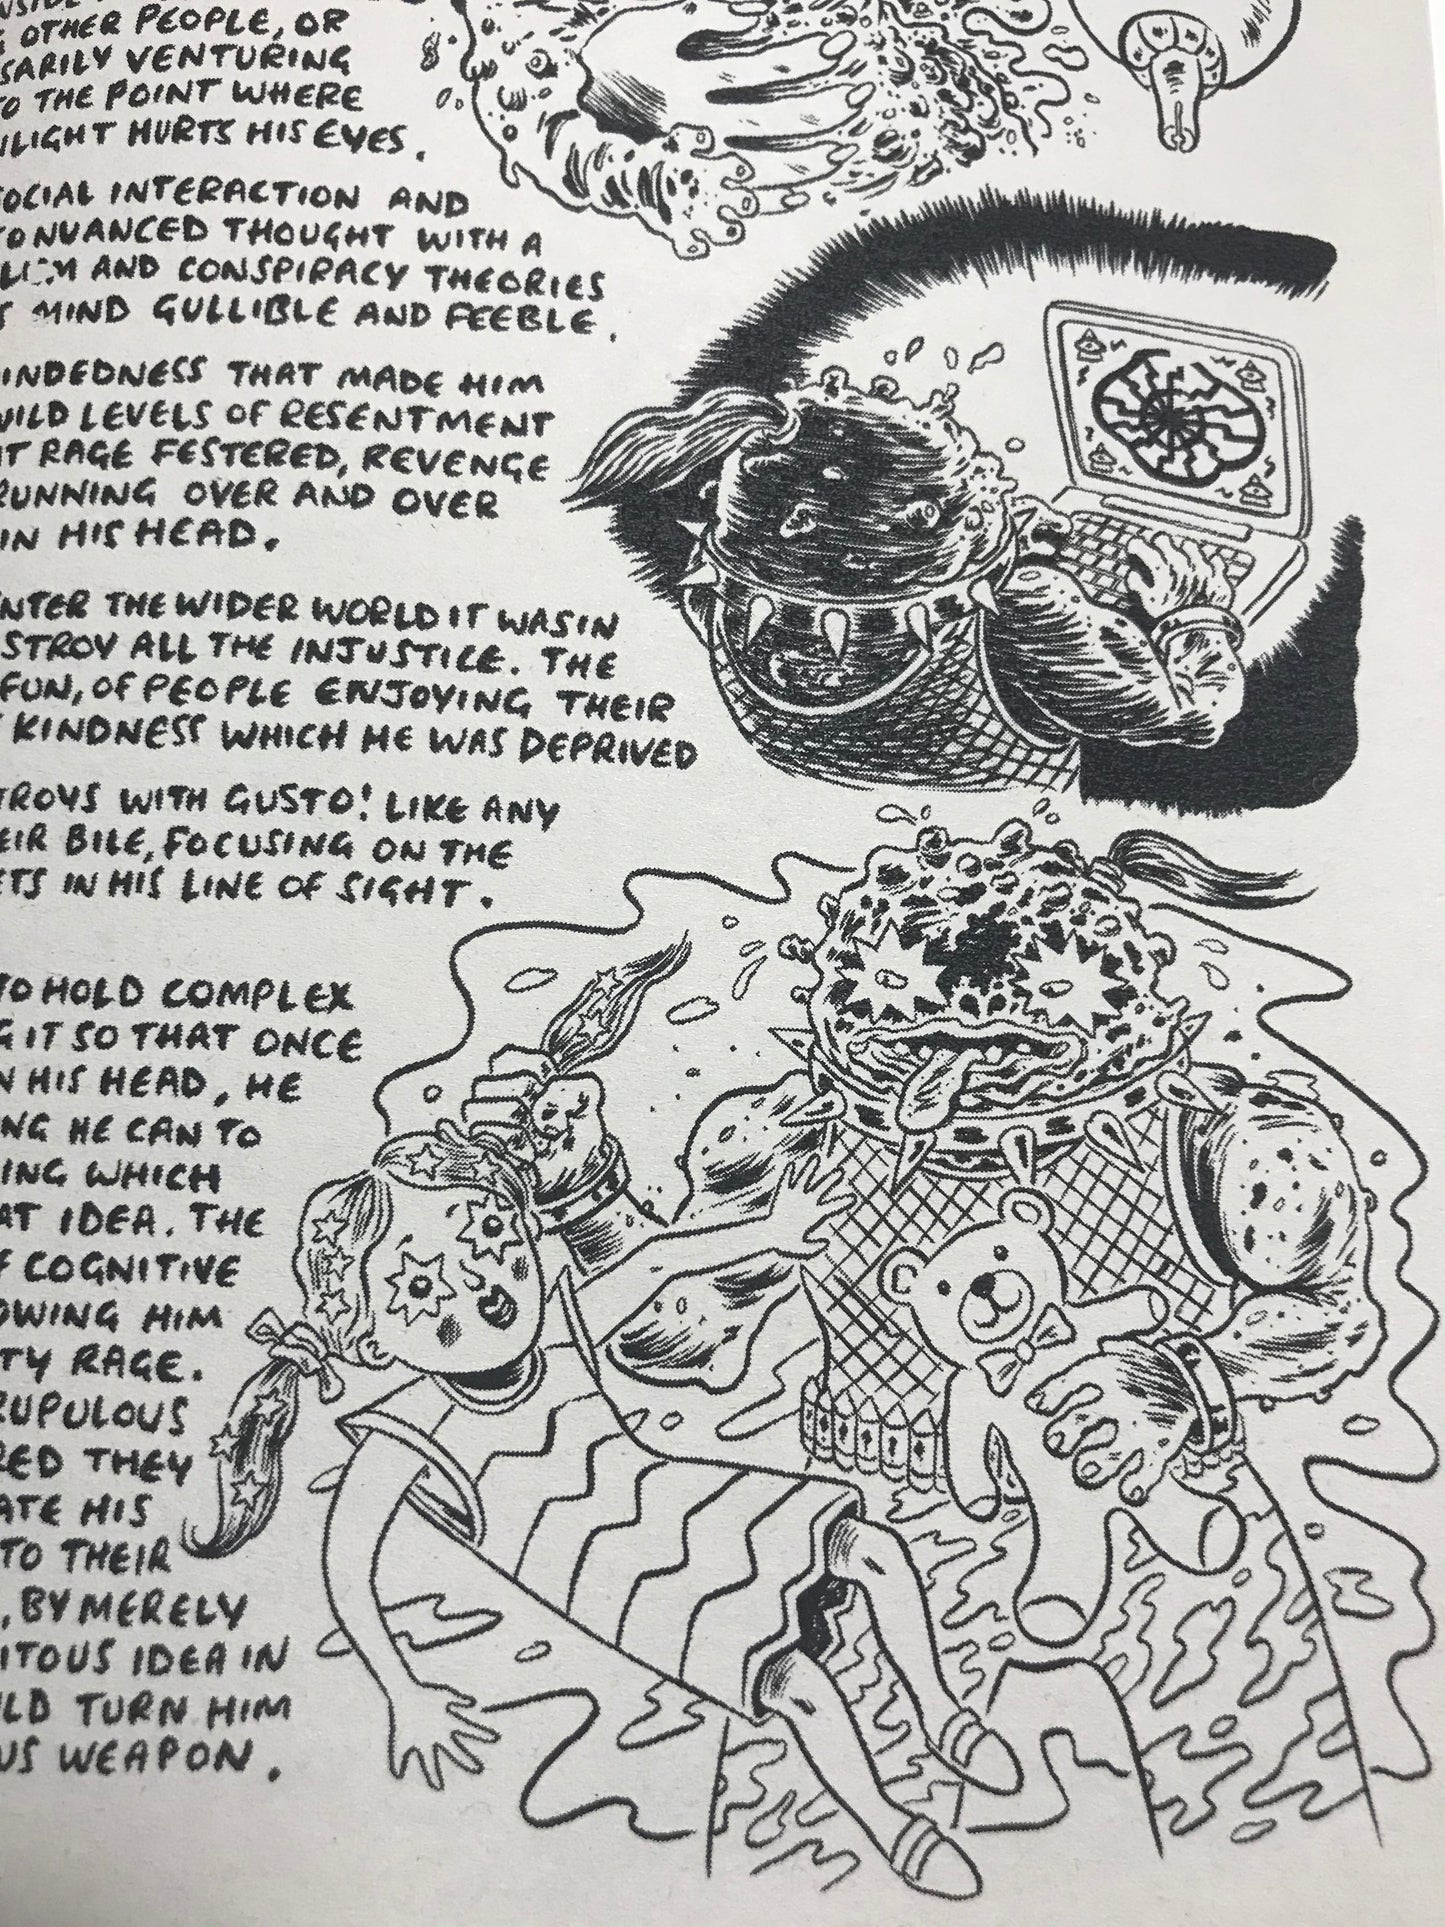 OTHER PEOPLE, OR
VENTURING
TO THE POINT WHERE
HURTS HIS EYES.
SOCIAL INTERACTION AND
NUANCED THOUGHT WITH A
AND CONSPIRACY THEORIES
MIND GULLIBLE AND FEEBLE.
THAT MADE HIM
LEVELS OF RESENTMENT
RAGE FESTERED, REVENGE
RUNNING OVER AND OVER
IN HIS HEAD.
THE WIDER WORLD IT WAS IN
ALL THE INJUSTICE. THE
FUN, OF PEOPLE ENJOYING THEIR
KINDNESS WHICH HE WAS DEPRIVED
WITH GUSTO! LIKE ANY
BILE, FOCUSING ON THE
IN HIS LINE OF SIGHT.
TO HOLD COMPLEX
IT SO THAT ONCE
HIS HEAD, HE
HE CAN TO
WHICH
IDEA. THE
COGNITIVE
HIM
RAGE.
THEY
HIS
TO THEIR
, BY MERELY
IDEA IN
TURN HIM
WEAPON.